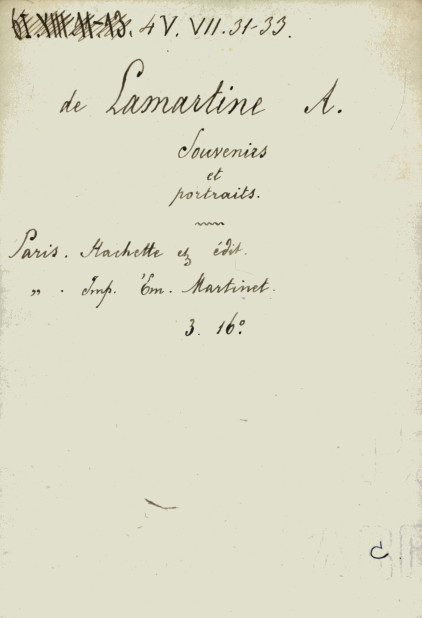 4 V. VII. 31-33.
de Lamartine A.
Souvenirs
et
portraits.
Paris. Hachette et édit.
„ . Imp. Ém. Martinet.
3. 16º